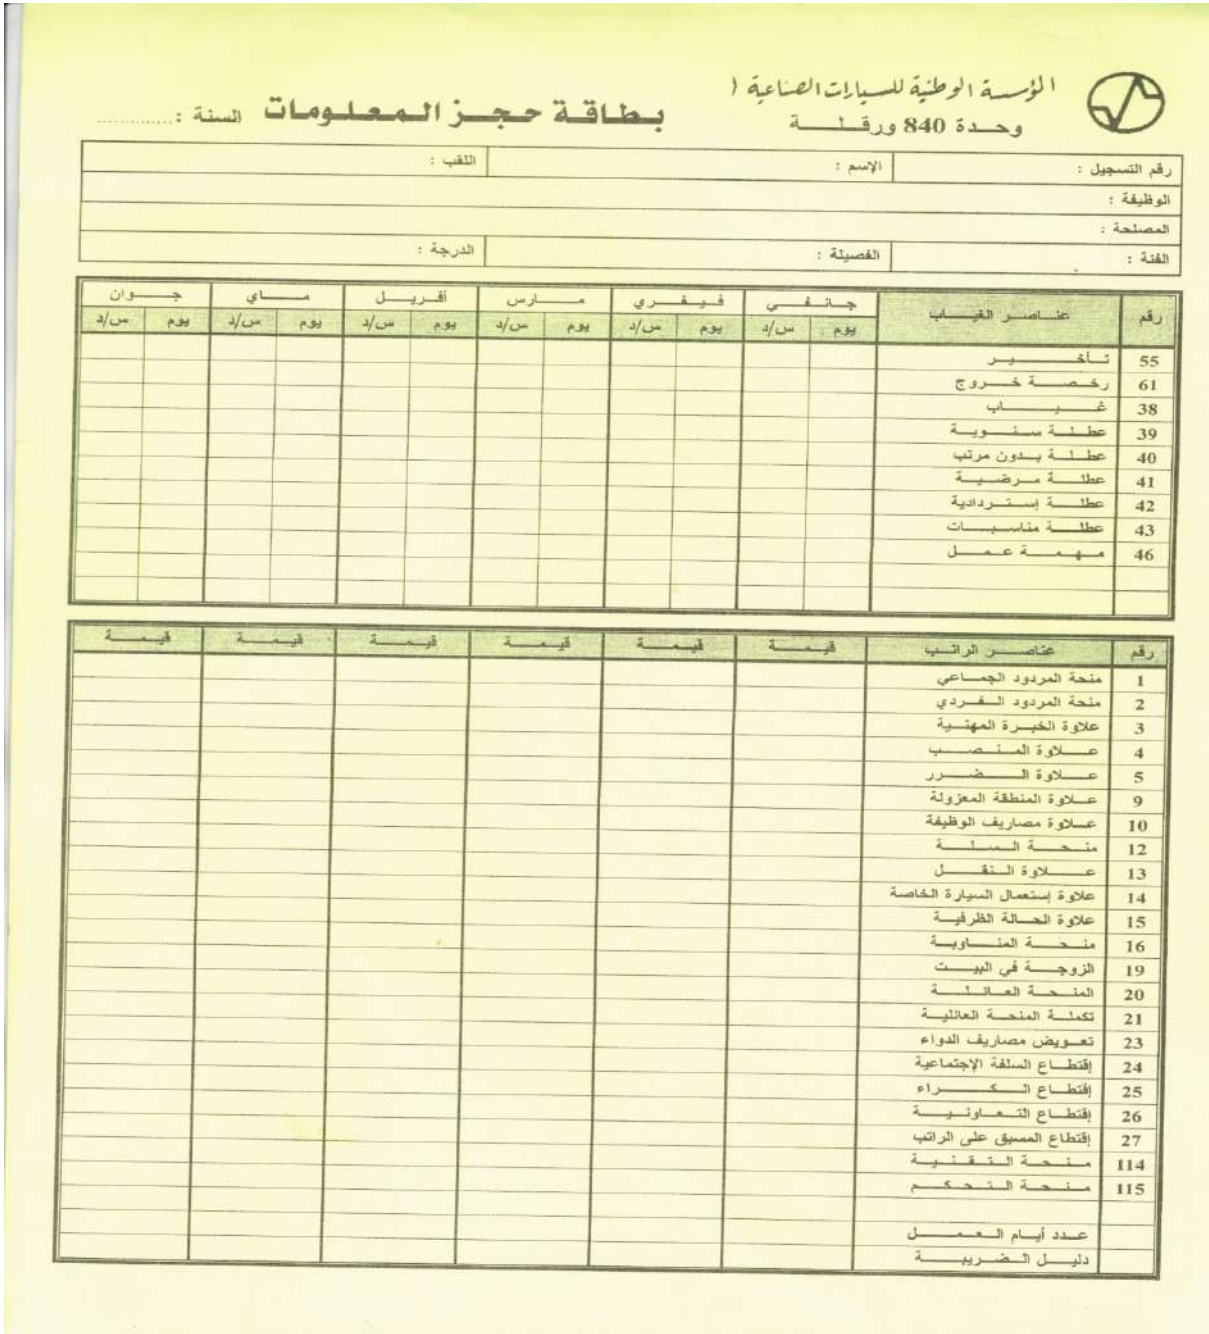 المؤسسة الوطنية للسيارات الصناعية (
وحدة 840 ورقلة
بطاقة حجز المعلومات السنة : ............
رقم التسجيل : الإسم : اللقب :
الوظيفة :
المصلحة :
الفئة : الفصيلة : الدرجة :
رقم عناصر الغياب جانفي فيفري مارس أفريل ماي جوان
يوم س/د يوم س/د يوم س/د يوم س/د يوم س/د يوم س/د
55 تأخير
61 رخصة خروج
38 غياب
39 عطلة سنوية
40 عطلة بدون مرتب
41 عطلة مرضية
42 عطلة إستردادية
43 عطلة مناسبات
46 مهمة عمل
رقم عناصر الراتب قيمة قيمة قيمة قيمة قيمة قيمة
1 منحة المردود الجماعي
2 منحة المردود الفردي
3 علاوة الخبرة المهنية
4 علاوة المنصب
5 علاوة الضرر
9 علاوة المنطقة المعزولة
10 علاوة مصاريف الوظيفة
12 منحة السلة
13 علاوة النقل
14 علاوة إستعمال السيارة الخاصة
15 علاوة الحالة الظرفية
16 منحة المناوبة
19 الزوجة في البيت
20 المنحة العائلة
21 تكملة المنحة العائلية
23 تعويض مصاريف الدواء
24 إقتطاع السلفة الإجتماعية
25 إقتطاع الكراء
26 إقتطاع التعاونية
27 إقتطاع المسبق على الراتب
114 منحة التقنية
115 منحة التحكم
عدد أيام العمل
دليل الضريبة